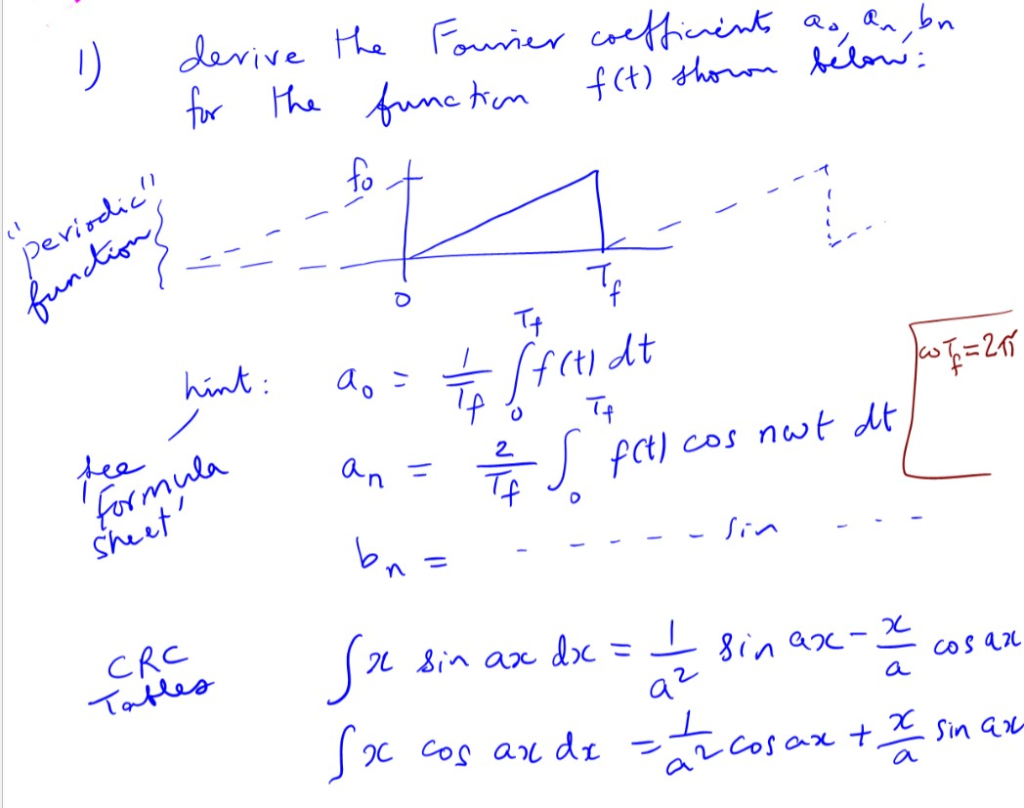 1) derive the Fourier coefficients a₀, aₙ, bₙ
for the function f(t) shown below:
"periodic"
function
f₀
0
T_f
hint: a₀ = 1/T_f ∫₀^{T_f} f(t) dt
ωT_f = 2π
see 'formula sheet'
aₙ = 2/T_f ∫₀^{T_f} f(t) cos nωt dt
bₙ = - - - - - sin - - -
CRC Tables
∫ x sin ax dx = 1/a² sin ax - x/a cos ax
∫ x cos ax dx = 1/a² cos ax + x/a sin ax